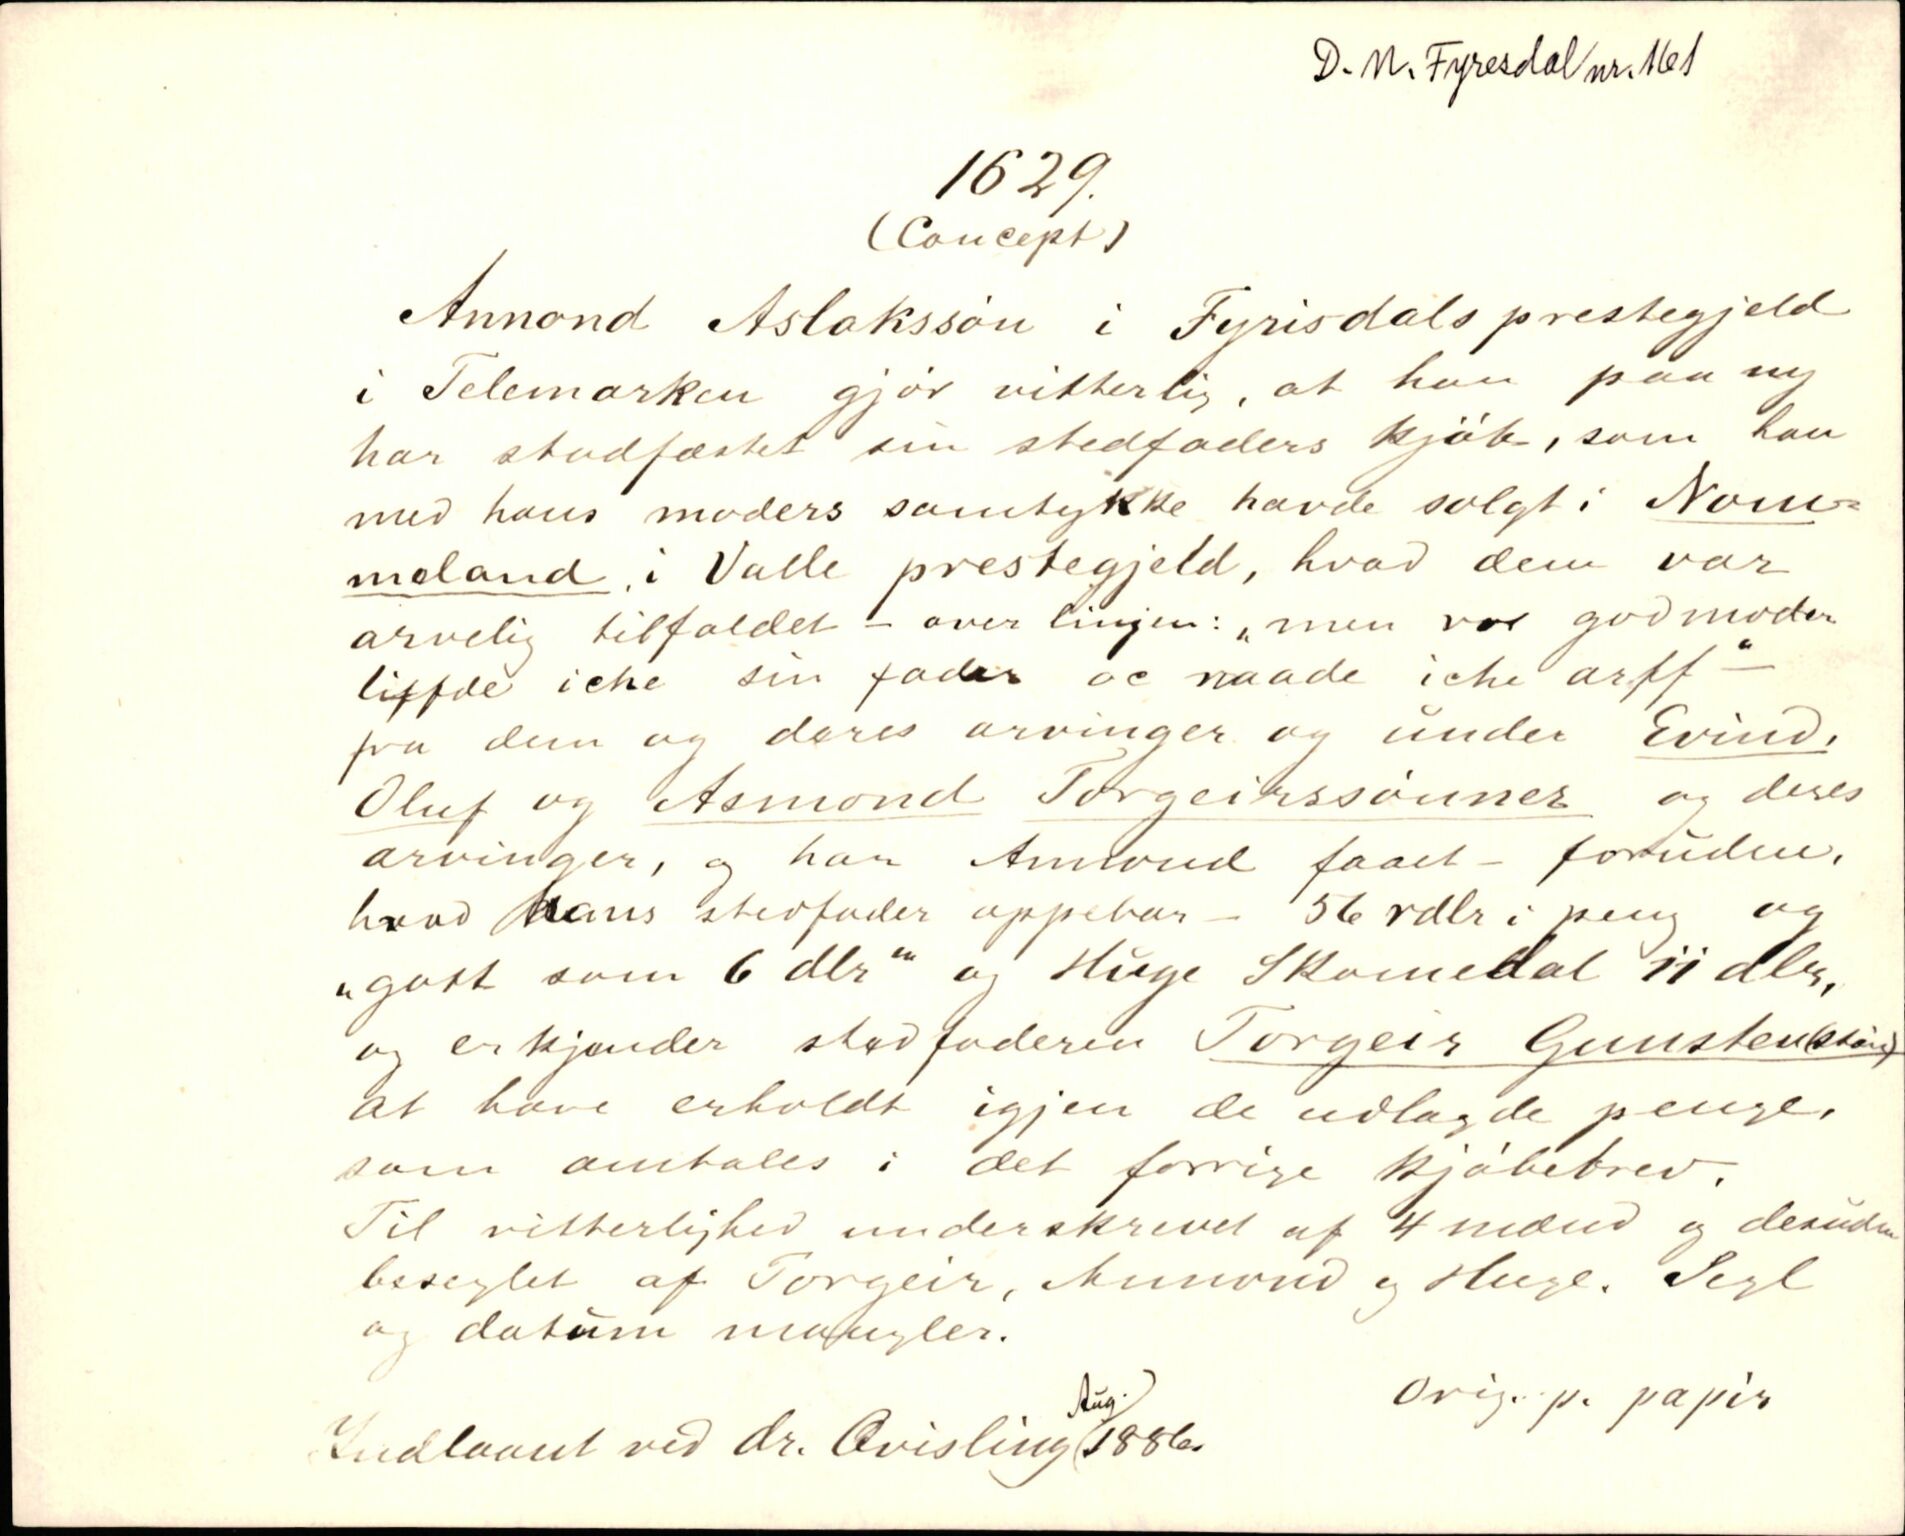 D. N. Fyresdal nr. 161
1629.
(Concept)
Anmond Aslakssön i Fyrisdals prestegjeld
i Telemarken gjör vitterlig, at han paa ny
har stadfæstet sin stedfaders kjöb, som han
med hans moders samtykke havde solgt i Nom=
meland, i Valle prestegjeld, hvad dem var
arvelig tilfaldet – over linjen: „men vor godmoder
liffde iche sin fader oc naade iche arff“ –
fra dem og deres arvinger og under Evind,
Oluf og Asmond Torgeirssönner og deres
arvinger, og har Anmond faaet – foruden,
hvad hans stedfader oppebar – 56 rdlr i peng og
„gott som 6 dlr“ og Huge Skomedal ii dlr,
og erkjender stedfaderen Torgeir Gunsten(ssön)
at have erholdt igjen de udlagde penge,
som omtales i det forrige kjöbebrev.
Til vitterlighed underskrevet af 4 mænd og desuden
beseglet af Torgeir, Anmond og Huge. Segl
og datum mangler.
Orig. p. papir
Indlaant ved dr. Qvisling (Aug. 1886.